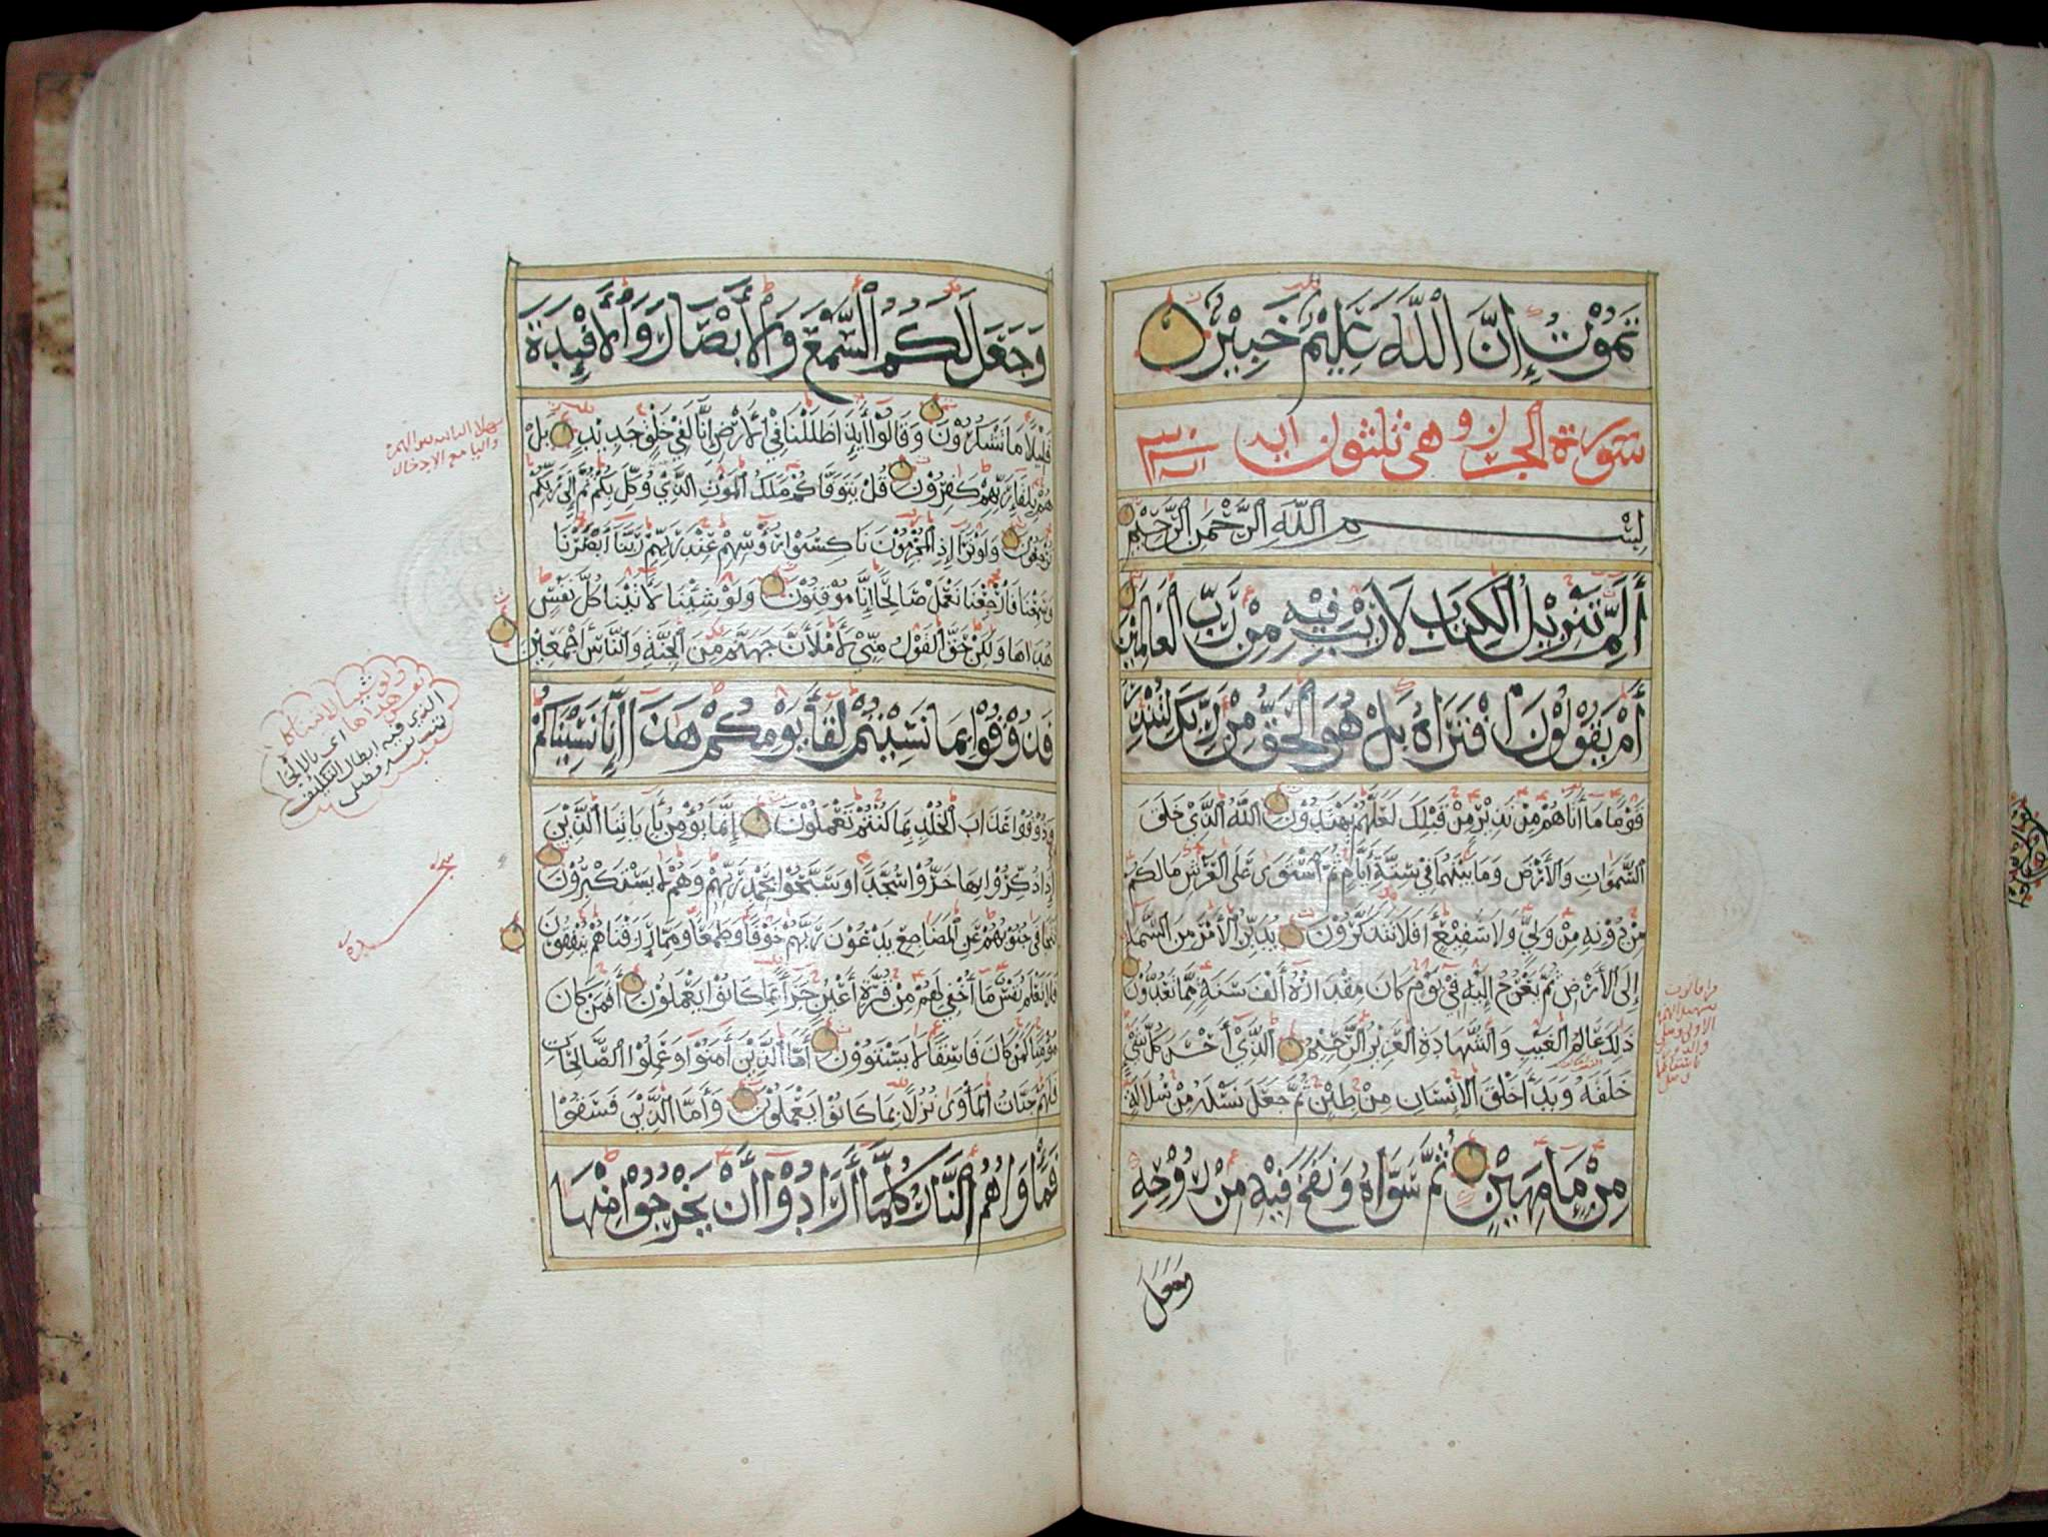 تَمُوْتُ إِنَّ اللَّهَ عَلِيْمٌ خَبِيْرٌ
سورة الجرزن وهى ثلثون اية
بِسْمِ اللَّهِ الرَّحْمَنِ الرَّحِيْمِ
أَلَمِّ تَنْزِيْلُ الْكِتَابِ لَا رَيْبَ فِيْهِ مِنْ رَبِّ الْعَالَمِيْنَ
أَمْ يَقُوْلُوْنَ افْتَرَاهُ بَلْ هُوَ الْحَقُّ مِنْ رَبِّكَ لِتُنْذِرَ
قَوْمًا مَا أَتَاهُمْ مِنْ نَذِيْرٍ مِنْ قَبْلِكَ لَعَلَّهُمْ يَهْتَدُوْنَ اللَّهُ الَّذِيْ خَلَقَ
السَّمَوَاتِ وَالْأَرْضَ وَمَا بَيْنَهُمَا فِيْ سِتَّةِ أَيَّامٍ ثُمَّ اسْتَوَى عَلَى الْعَرْشِ مَا لَكُمْ
مِنْ دُوْنِهِ مِنْ وَلِيٍّ وَلَا شَفِيْعٍ أَفَلَا تَتَذَكَّرُوْنَ يُدَبِّرُ الْأَمْرَ مِنَ السَّمَا
إِلَى الْأَرْضِ ثُمَّ يَعْرُجُ إِلَيْهِ فِيْ يَوْمٍ كَانَ مِقْدَارُهُ أَلْفَ سَنَةٍ مِمَّا تَعُدُّوْنَ
ذَلِكَ عَالِمُ الْغَيْبِ وَالشَّهَادَةِ الْعَزِيْزُ الرَّحِيْمُ الَّذِيْ أَحْسَنَ كُلَّ شَيْ
خَلَقَهُ وَبَدَأَ خَلْقَ الْإِنْسَانِ مِنْ طِيْنٍ ثُمَّ جَعَلَ نَسْلَهُ مِنْ سُلَالَةٍ
مِنْ مَا مَهِيْنٍ ثُمَّ سَوَّاهُ وَنَفَخَ فِيْهِ مِنْ رُوْحِهِ
وَجَعَلَ
وَجَعَلَ لَكُمُ السَّمْعَ وَالْأَبْصَارَ وَالْأَفْئِدَةَ
قَلِيْلًا مَا تَشْكُرُوْنَ وَقَالُوْا أَيِذَا ظَلَلْنَا فِي الْأَرْضِ إِنَّا لَفِيْ خَلْقٍ جَدِيْدٍ بَلْ
هُمْ بِلِقَا رَبِّهِمْ كَفِرُوْنَ قُلْ يَتَوَفَّاكُمْ مَلَكُ الْمَوْتِ الَّذِيْ وُكِّلَ بِكُمْ ثُمَّ إِلَى رَبِّكُمْ
تُرْجَعُوْنَ وَلَوْ تَرَى إِذِ الْمُجْرِمُوْنَ نَاكِسُوْا رُؤُسِهِمْ عِنْدَ رَبِّهِمْ رَبَّنَا أَبْصَرْنَا
وَسَمِعْنَا فَارْجِعْنَا نَعْمَلْ صَالِحًا إِنَّا مُوْقِنُوْنَ وَلَوْ شِيْنَا لَأَتَيْنَا كُلَّ نَفْسٍ
هُدَاهَا وَلَكِنْ حَقَّ الْقَوْلُ مِنِّيْ لَأَمْلَأَنَّ جَهَنَّمَ مِنَ الْجِنَّةِ وَالنَّاسِ أَجْمَعِيْنَ
فَذُوْقُوْا بِمَا نَسِيْتُمْ لِقَا يَوْمِكُمْ هَذَا إِنَّا نَسِيْنَاكُمْ
وَذُوْقُوْا عَذَابَ الْخُلْدِ بِمَا كُنْتُمْ تَعْمَلُوْنَ إِنَّمَا يُؤْمِنُ بِأَيَاتِنَا الَّذِيْنَ
إِذَا ذُكِّرُوْا بِهَا خَرُّوْا سُجَّدًا وَسَبَّحُوْا بِحَمْدِ رَبِّهِمْ وَهُمْ لَا يَسْتَكْبِرُوْنَ
تَتَجَافَى جُنُوْبُهُمْ عَنِ الْمَضَاجِعِ يَدْعُوْنَ رَبَّهُمْ خَوْفًا وَطَمَعًا وَمِمَّا رَزَقْنَاهُمْ يُنْفِقُوْنَ
فَلَا تَعْلَمُ نَفْسٌ مَا أُخْفِيَ لَهُمْ مِنْ قُرَّةِ أَعْيُنٍ جَزَاءً بِمَا كَانُوْا يَعْمَلُوْنَ أَفَمَنْ كَانَ
مُؤْمِنًا كَمَنْ كَانَ فَاسِقًا لَا يَسْتَوُوْنَ أَمَّا الَّذِيْنَ آمَنُوْا وَعَمِلُوْا الصَّالِحَاتِ
فَلَهُمْ جَنَّاتُ الْمَأْوَى نُزُلًا بِمَا كَانُوْا يَعْمَلُوْنَ وَأَمَّا الَّذِيْنَ فَسَقُوْا
فَمَأْوَاهُمُ النَّارُ كُلَّمَا أَرَادُوْا أَنْ يَخْرُجُوْا مِنْهَا
سجدة